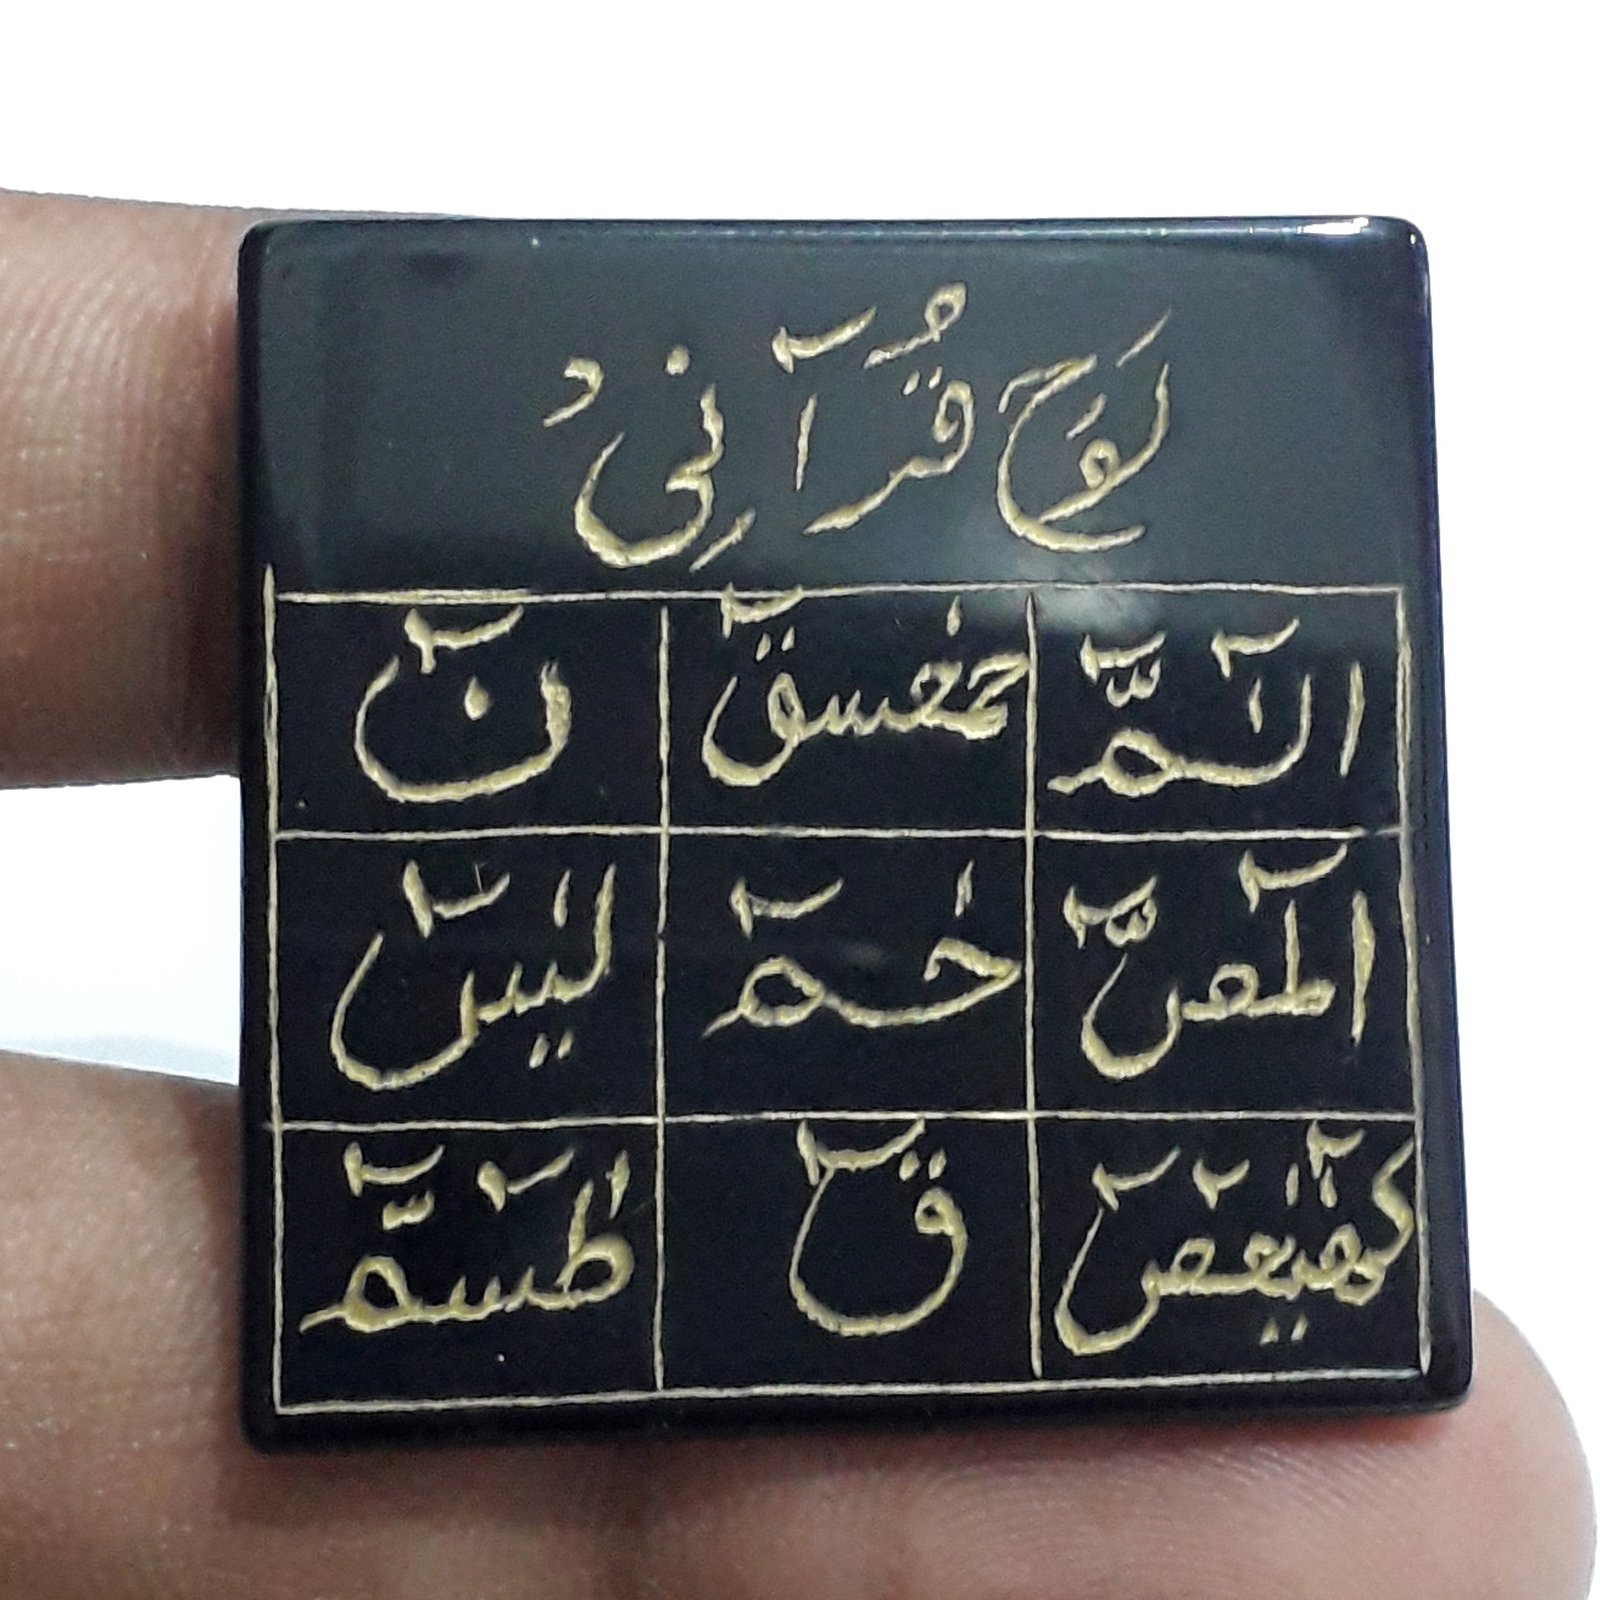 لَوَح قُرآنِی
الٓمّٓ حمعسقٓ نٓ
الٓمٓصّٓ حٰمٓ لیٰسٓ
کٓھٰیٰعٓصٓ قٓ طٰسٓمّٓ